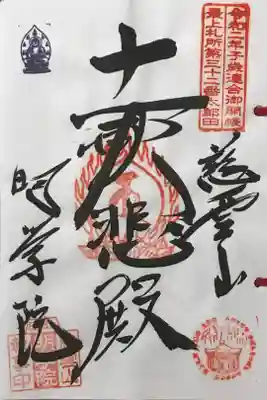 令和二年子歳連合御開帳
最上札所第三十二番太郎田
慈雲山
十一面大悲殿
明学院